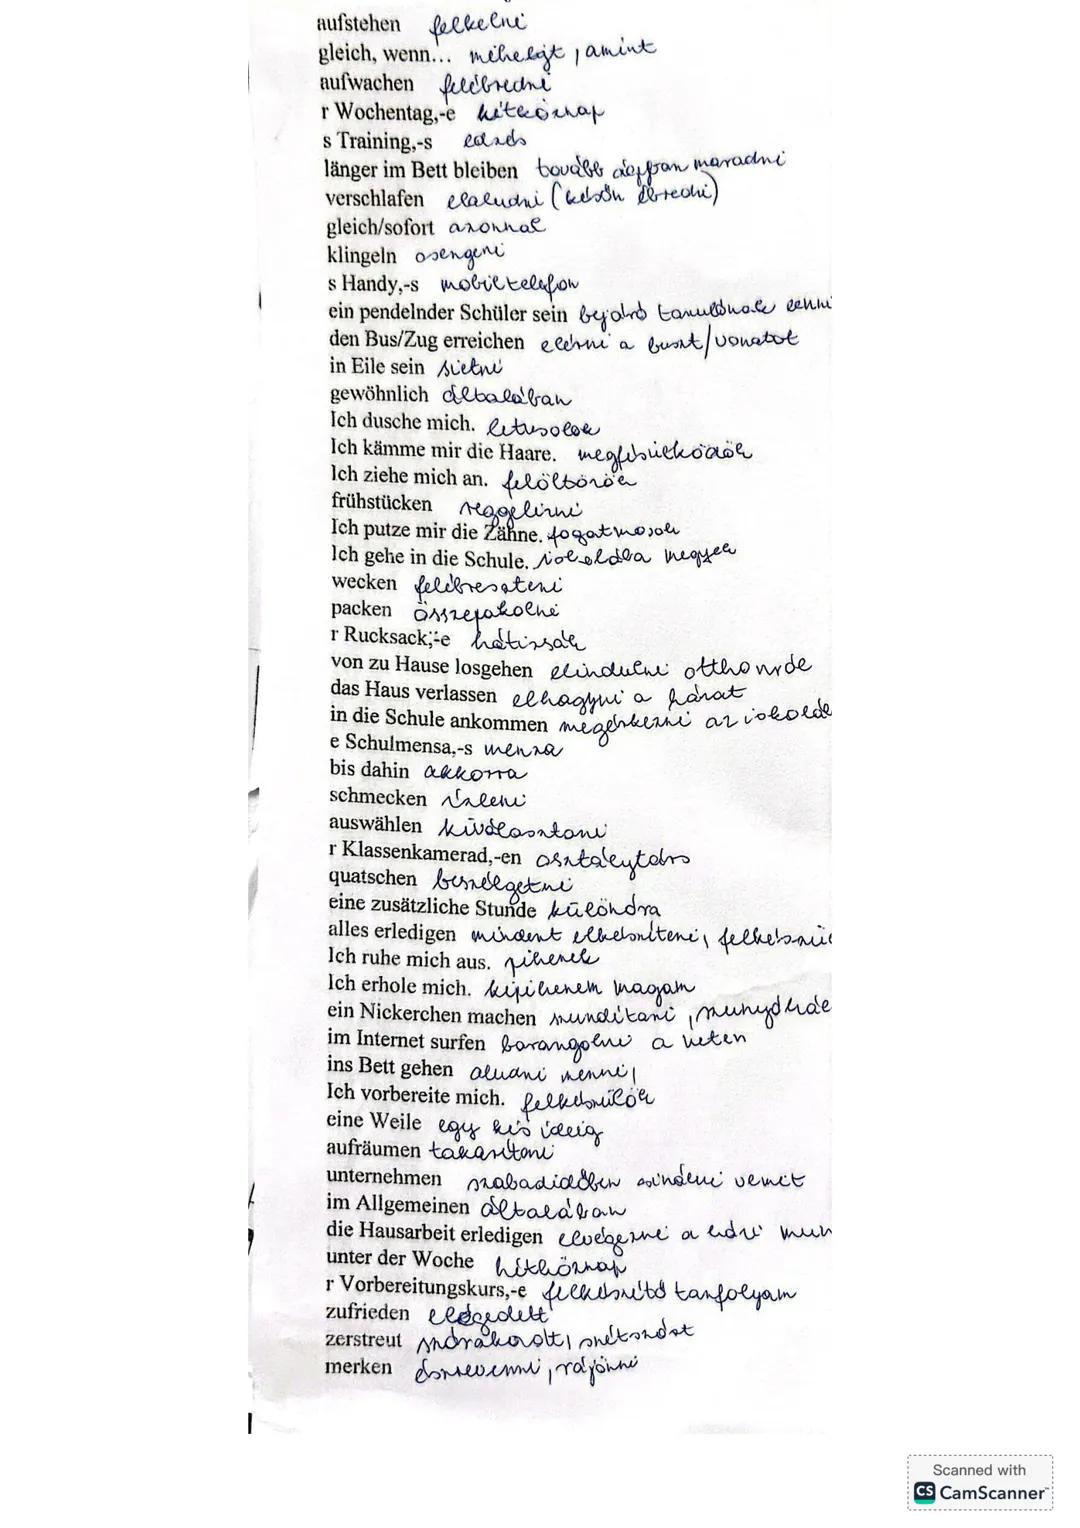 aufstehen felkelni
gleich, wenn... mihelyt, amint
aufwachen felébredni
r Wochentag,-e hétköznap
s Training,-s edzés
länger im Bett bleiben tovább ágyban maradni
verschlafen elaludni (későn ébredni)
gleich/sofort azonnal
klingeln csengeni
s Handy,-s mobiltelefon
ein pendelnder Schüler sein bejáró tanulónak lenni
den Bus/Zug erreichen elérni a buszt/vonatot
in Eile sein sietni
gewöhnlich általában
Ich dusche mich. letusolok
Ich kämme mir die Haare. megfésülködök
Ich ziehe mich an. felöltözök
frühstücken reggelizni
Ich putze mir die Zähne. fogatmosok
Ich gehe in die Schule. iskolába megyek
wecken felébreszteni
packen összepakolni
r Rucksack,¨-e hátizsák
von zu Hause losgehen elindulni otthonról
das Haus verlassen elhagyni a házat
in die Schule ankommen megérkezni az iskolába
e Schulmensa,-s menza
bis dahin akkorra
schmecken ízleni
auswählen kiválasztani
r Klassenkamerad,-en osztálytárs
quatschen beszélgetni
eine zusätzliche Stunde különóra
alles erledigen mindent elkészíteni,
Ich ruhe mich aus. pihenek
Ich erhole mich. kipihenem magam
ein Nickerchen machen szundítani,
im Internet surfen barangolni a neten
ins Bett gehen aludni menni,
Ich vorbereite mich. felkészülök
eine Weile egy kis ideig
aufräumen takarítani
unternehmen szabadidőben csinálni vmit
im Allgemeinen általában
die Hausarbeit erledigen elvégezni a házi mun
unter der Woche hétköznap
r Vorbereitungskurs,-e felkészítő tanfolyam
zufrieden elégedett
zerstreut szórakozott, szétszórt
merken észrevenni, rájönni
Scanned with
CS CamScanner